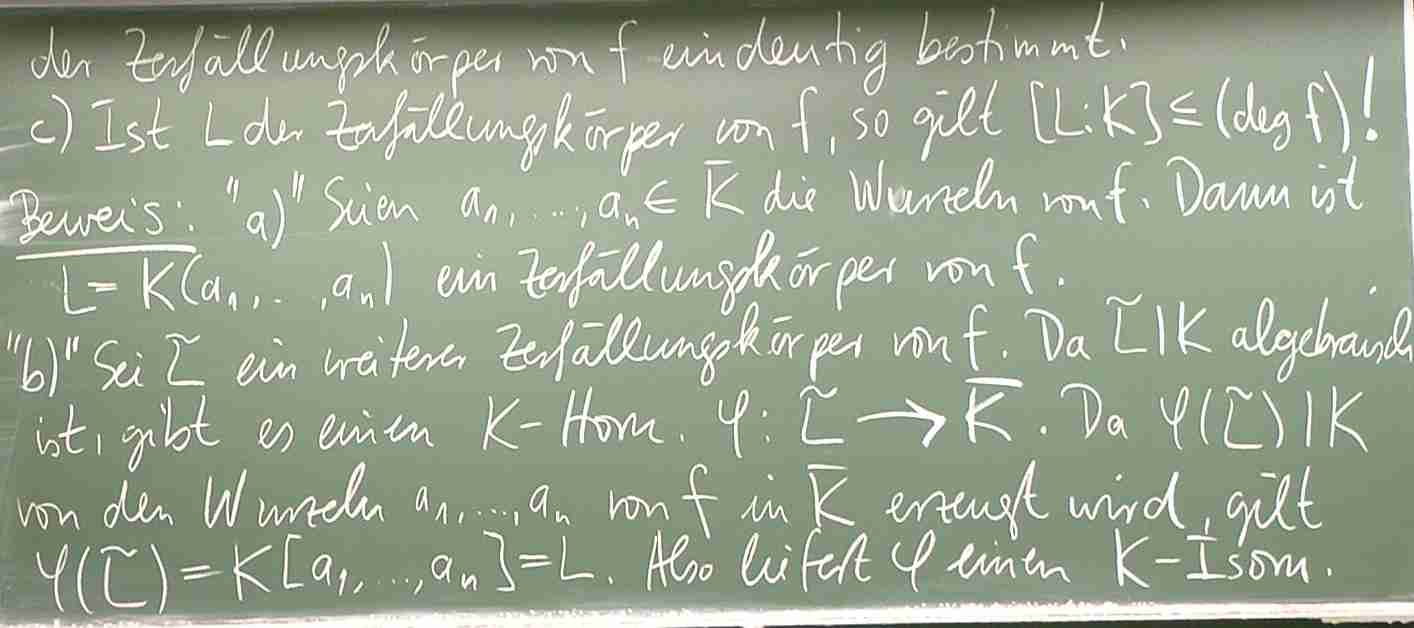 der Zerfällungskörper von f eindeutig bestimmt.
c) Ist L der Zerfällungskörper von f, so gilt [L:K] ≤ (deg f)!
Beweis: "a)" Seien a₁, ..., aₙ ∈ K̄ die Wurzeln von f. Dann ist
L = K(a₁, .., aₙ) ein Zerfällungskörper von f.
"b)" Sei L̃ ein weiterer Zerfällungskörper von f. Da L̃|K algebraisch
ist, gibt es einen K-Hom. φ: L̃ → K̄. Da φ(L̃)|K
von den Wurzeln a₁, ..., aₙ von f in K̄ erzeugt wird, gilt
φ(L̃) = K[a₁, ..., aₙ] = L. Also liefert φ einen K-Isom.